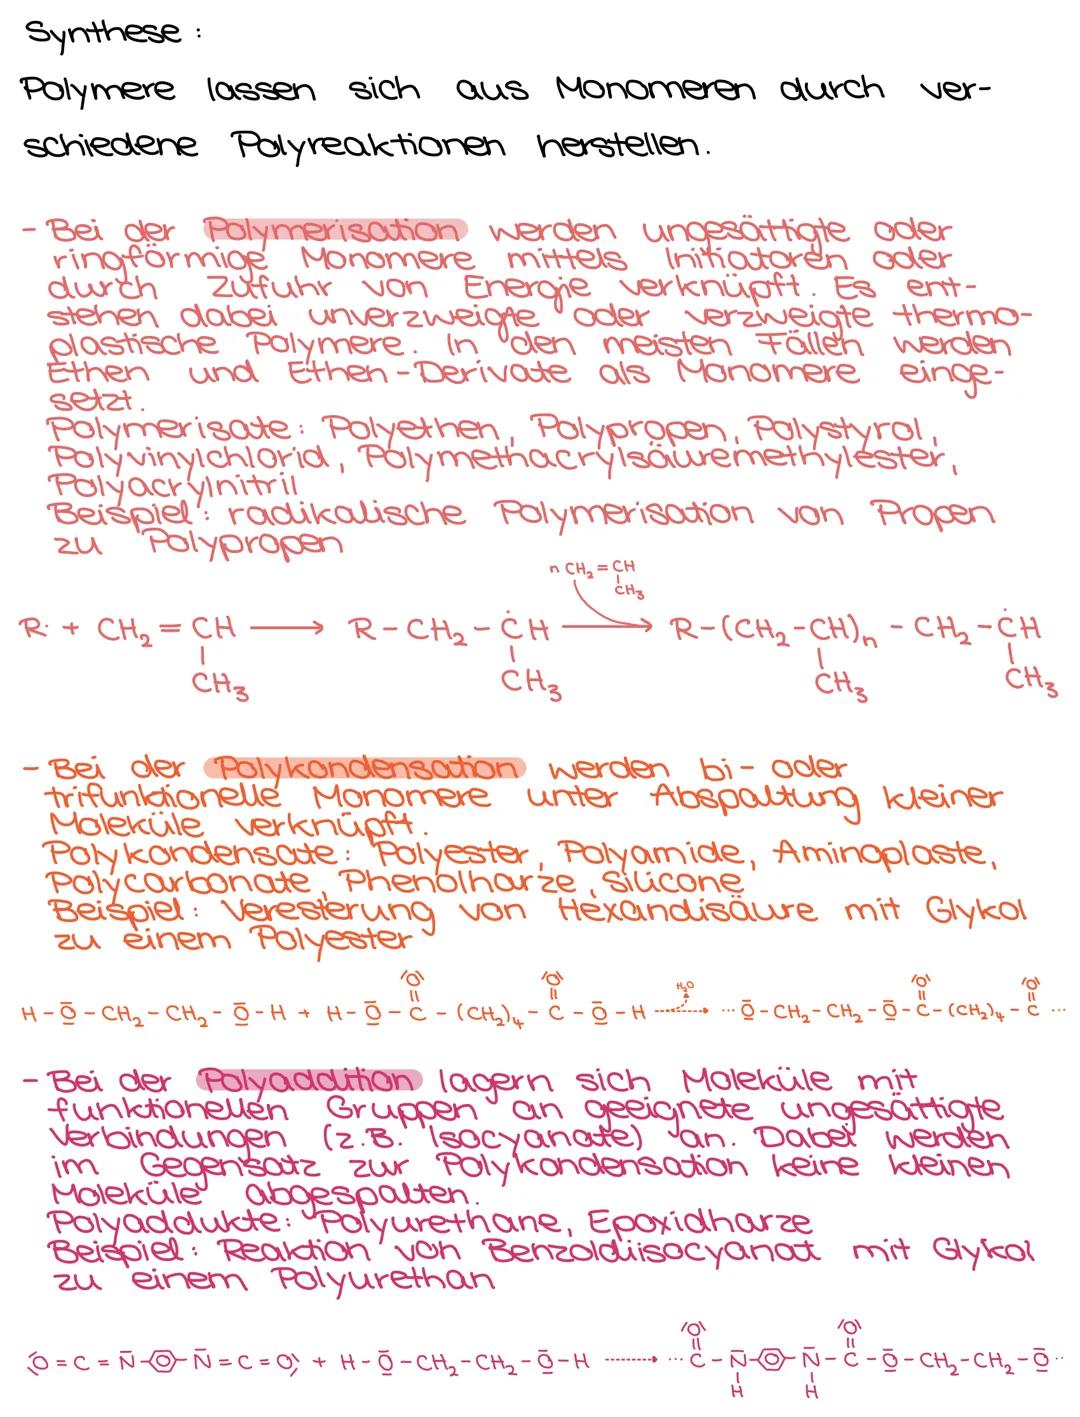 Synthese :
Polymere lassen sich aus Monomeren durch ver-
schiedene Polyreaktionen herstellen.
- Bei der Polymerisation werden ungesättigte oder
ringförmige Monomere mittels Initiatoren oder
durch Zufuhr von Energie verknüpft. Es ent-
stehen dabei unverzweigte oder verzweigte thermo-
plastische Polymere. In den meisten Fällen werden
Ethen und Ethen-Derivate als Monomere einge-
setzt.
Polymerisate: Polyethen, Polypropen, Polystyrol,
Polyvinylchlorid, Polymethacrylsäuremethylester,
Polyacrylnitril
Beispiel: radikalische Polymerisation von Propen
zu Polypropen
n CH₂ = CH
CH₃
R· + CH₂ = CH ⟶ R - CH₂ - ĊH ⟶ R-(CH₂-CH)ₙ - CH₂ - ĊH
CH₃ CH₃ CH₃ CH₃
- Bei der Polykondensation werden bi- oder
trifunktionelle Monomere unter Abspaltung kleiner
Moleküle verknüpft.
Polykondensate: Polyester, Polyamide, Aminoplaste,
Polycarbonate, Phenolharze, Silicone
Beispiel: Veresterung von Hexandisäure mit Glykol
zu einem Polyester
O O H₂O O O
H - O - CH₂ - CH₂ - O - H + H - O - C - (CH₂)₄ - C - O - H ⇢ ... O - CH₂ - CH₂ - O - C - (CH₂)₄ - C ...
- Bei der Polyaddition lagern sich Moleküle mit
funktionellen Gruppen an geeignete ungesättigte
Verbindungen (z.B. Isocyanate) an. Dabei werden
im Gegensatz zur Polykondensation keine kleinen
Moleküle abgespalten.
Polyaddukte: Polyurethane, Epoxidharze
Beispiel: Reaktion von Benzoldiisocyanat mit Glykol
zu einem Polyurethan
O O
O = C = N - - N = C = O + H - O - CH₂ - CH₂ - O - H ⇢ ... C - N - - N - C - O - CH₂ - CH₂ - O ...
H H